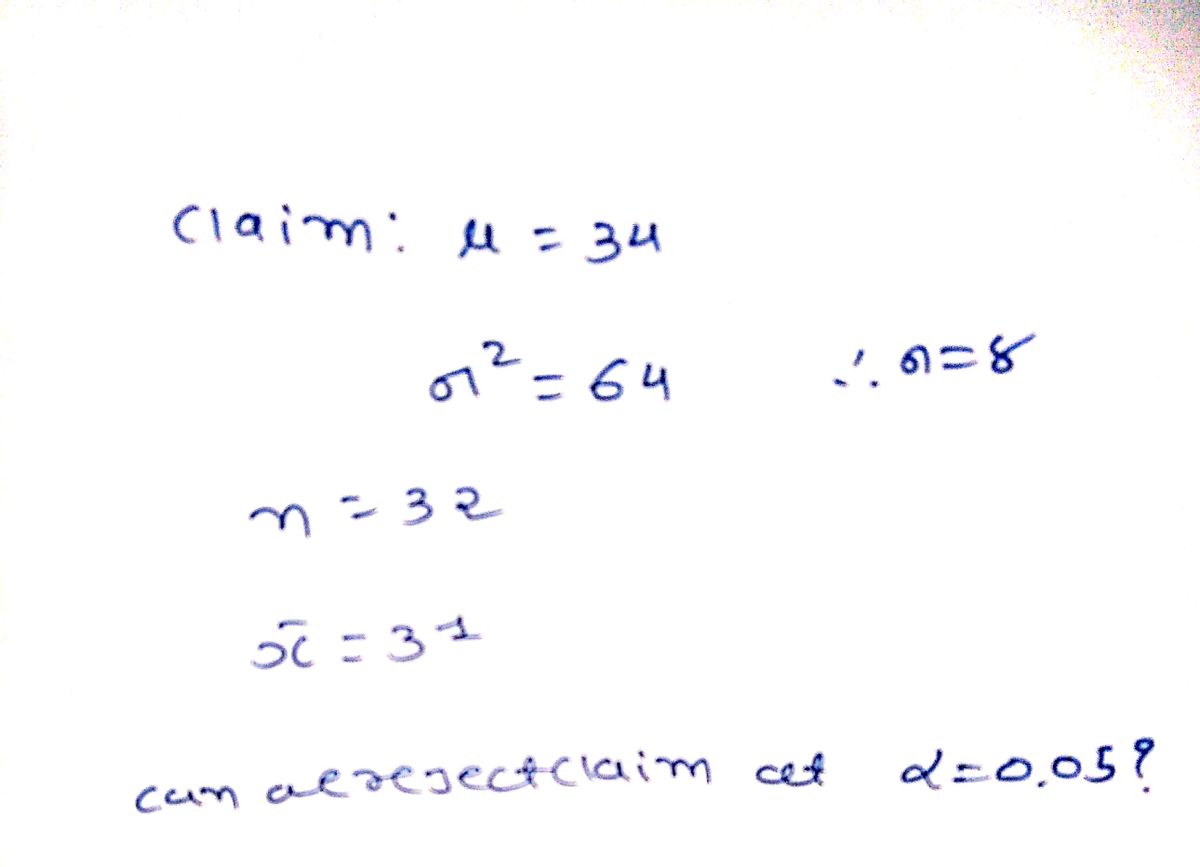 Claim: μ = 34
σ² = 64 ∴ σ = 8
n = 32
x̄ = 31
can we reject claim at α = 0.05?